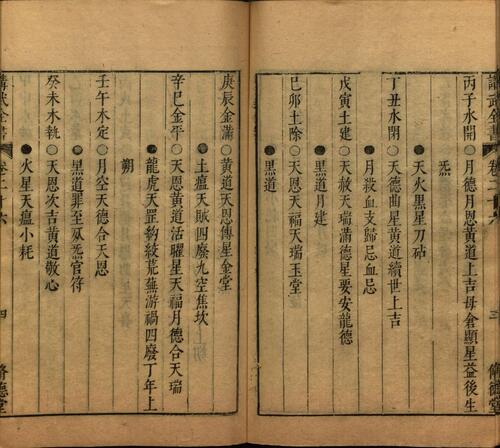 講武全書
卷二十六
三
脩德堂
丙子水開〇月德月恩黃道上吉母倉顯星益後生
炁
●天火黑星刀砧
丁丑水閉〇天德曲星黃道續世上吉
●月殺血支歸忌血忌
戊寅土建〇天赦天瑞滿德星要安龍德
●黑道月建
己卯土除〇天恩天福天瑞玉堂
●黑道
庚辰金滿〇黃道天恩傳星金堂
●土瘟天賊四廢九空焦坎
辛巳金平〇天恩黃道活曜星天福月德合天瑞
●龍虎天罡鈎絞荒蕪游禍四廢丁年上
朔
壬午木定〇月空天德合天恩
●黑道罪至死炁官符
癸未木執〇天恩次吉黃道敬心
●火星天瘟小耗
講武全書
卷二十六
四
脩德堂